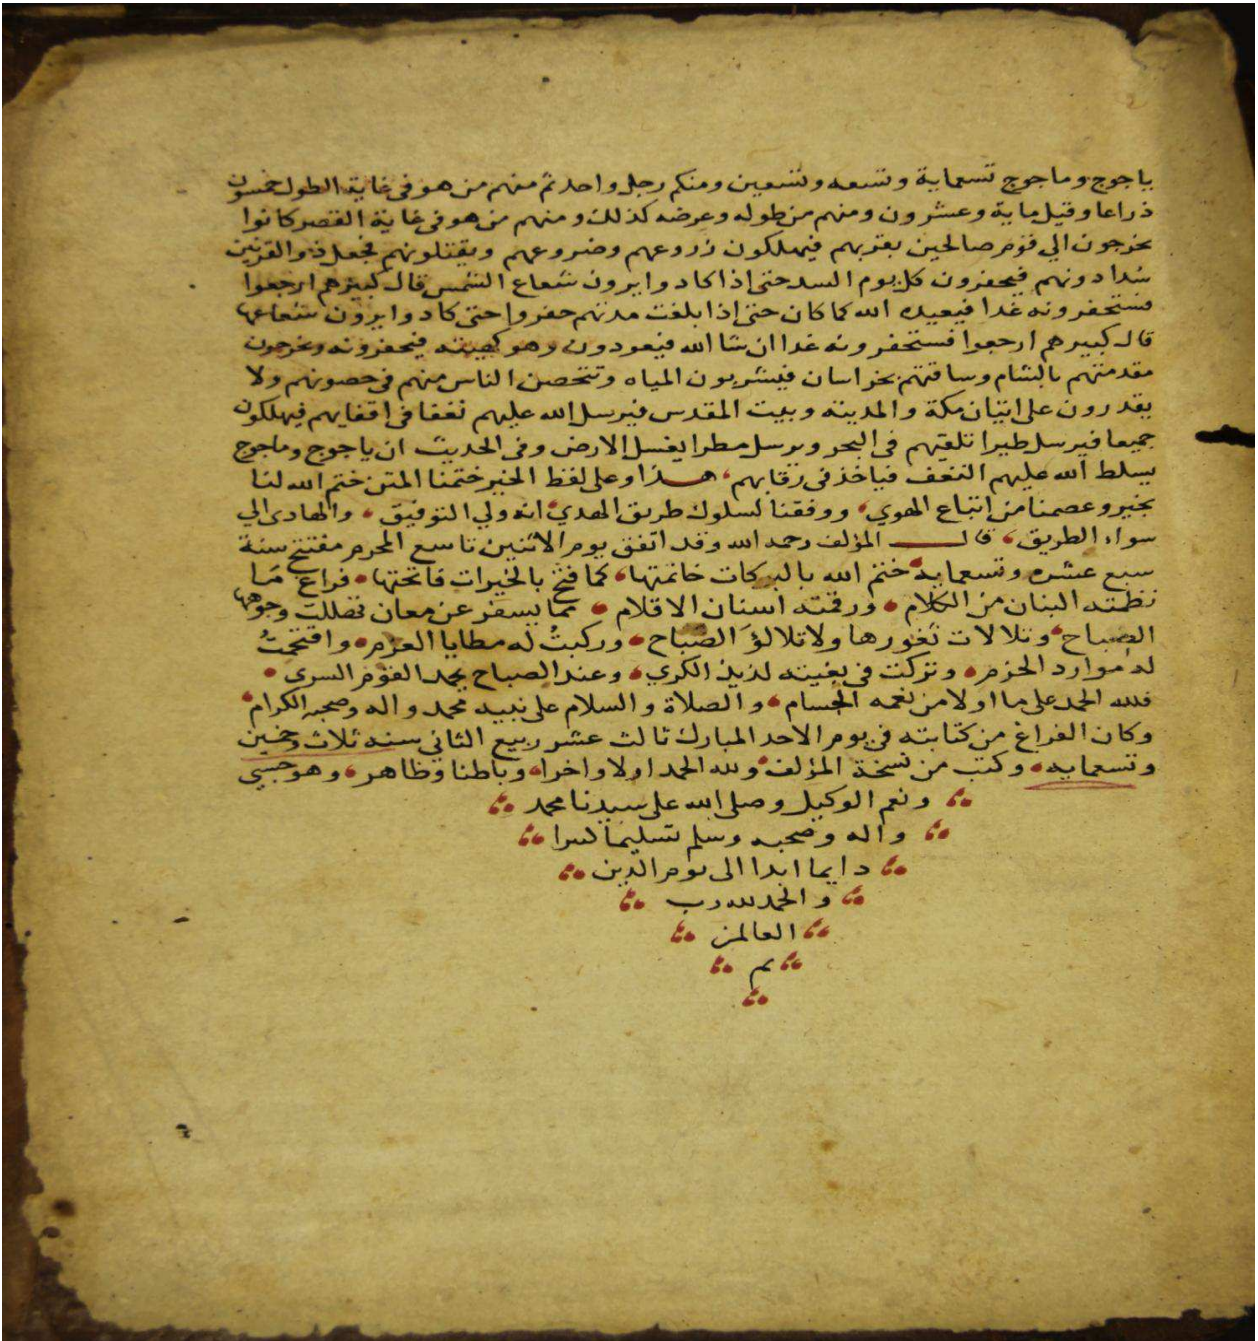 ياجوج وماجوج تسعماية وتسعه وتسعين ومنكم رجل واحد ثم منهم من هو في غاية الطول خمسون
ذراعا وقيل ماية وعشرون ومنهم من طوله وعرضه كذلك ومنهم من هو في غاية القصر كانوا
يخرجون الي قوم صالحين بقربهم فيهلكون زروعهم وضروعهم ويقتلونهم فجعل ذو القرنين
سدا دونهم فيحفرون كل يوم السد حتى اذا كادوا يرون شعاع الشمس قال كبيرهم ارجعوا
فستحفرونه غدا فيعيده الله كما كان حتى اذا بلغت مدتهم حفروا حتى كادوا يرون شعاعها
قال كبيرهم ارجعوا فستحفرونه غدا ان شا الله فيعودون وهو كهيته فيحفرونه ويخرجون
مقدمتهم بالشام وساقتهم بخراسان فيشربون المياه وتتحصن الناس منهم في حصونهم ولا
يقدرون على اتيان مكة والمدينه وبيت المقدس فيرسل الله عليهم نغفا في اقفايهم فيهلكون
جميعا فيرسل طيرا تلقيهم في البحر ويرسل مطرا يغسل الارض وفي الحديث ان ياجوج وماجوج
يسلط الله عليهم النغف فياخذ في رقابهم هذا وعلى لفظ الخير ختمنا المتن ختم الله لنا
بخير وعصمنا من اتباع الهوي ووفقنا لسلوك طريق الهدي انه ولي التوفيق والهادي الي
سواء الطريق قال المؤلف رحمه الله وقد اتفق يوم الاثنين تاسع المحرم مفتتح سنة
سبع عشره وتسعمايه ختم الله بالبركات خاتمتها كما فتح بالخيرات فاتحتها فراغ ما
نظمته البنان من الكلام ورقمته اسنان الاقلام مما يسفر عن معان تهللت وجوهها
الصباح وتلالات ثغورها ولا تلالؤ الصباح وركبتُ له مطايا العزم واقتحمتُ
له موارد الحزم وتركت في بغيته لذيذ الكري وعند الصباح يحمد القوم السرى
فلله الحمد على ما اولا من نعمه الجسام والصلاة والسلام على نبيه محمد واله وصحبه الكرام
وكان الفراغ من كتابته في يوم الاحد المبارك ثالث عشر ربيع الثاني سنه ثلاث وخمسين
وتسعمايه وكتب من نسخة المؤلف ولله الحمد اولا واخرا وباطنا وظاهر وهو حسبي
ونعم الوكيل وصلى الله على سيدنا محمد
واله وصحبه وسلم تسليما كثيرا
دايما ابدا الى يوم الدين
والحمد لله رب
العالمين
تم